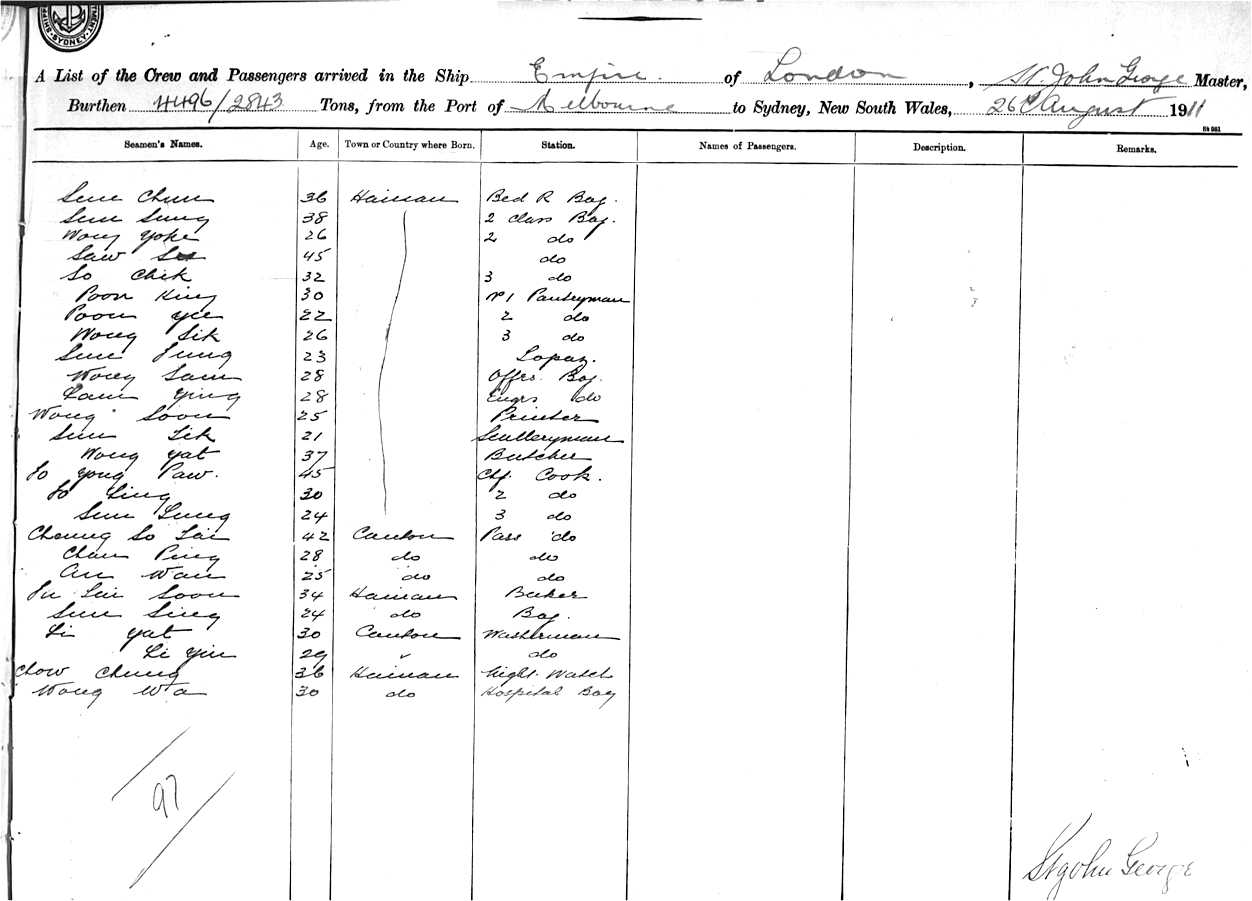 SYDNEY
A List of the Crew and Passengers arrived in the Ship Empire of London, St. John George Master,
Burthen 4496/2843 Tons, from the Port of Melbourne to Sydney, New South Wales, 26th August 1911
Seamen's Names. Age. Town or Country where Born. Station. Names of Passengers. Description. Remarks.
Sum Chun 36 Hainan Bed R Boy.
Sum Sung 38 2 Class Boy.
Wong Yoke 26 2 do
Saw 45 do
So Chik 32 3 do
Poon King 30 No 1 Pantryman
Poon Yee 22 2 do
Wong Sik 26 3 do
Sum 23 Lopaz.
Wong Sam 28 Offrs. Boy.
Lam Ying 28 Engrs do
Wong Soon 25 Printer
Sum Sik 21 Sculleryman
Wong Yat 37 Butcher
So Yong Paw. 45 Chf. Cook.
So Ling 30 2 do
Sum Lung 24 3 do
Cheung So Lai 42 Canton Pass do
Chan Ping 28 do do
An Wan 25 do do
Fu Lai Soon 34 Hainan Baker
Sum Sing 24 do Boy.
Li Yat 30 Canton Washerman
Li Yin 29 " do
Chow Chung 36 Hainan Night Watch
Wong Wa 30 do Hospital Boy
97
St John George